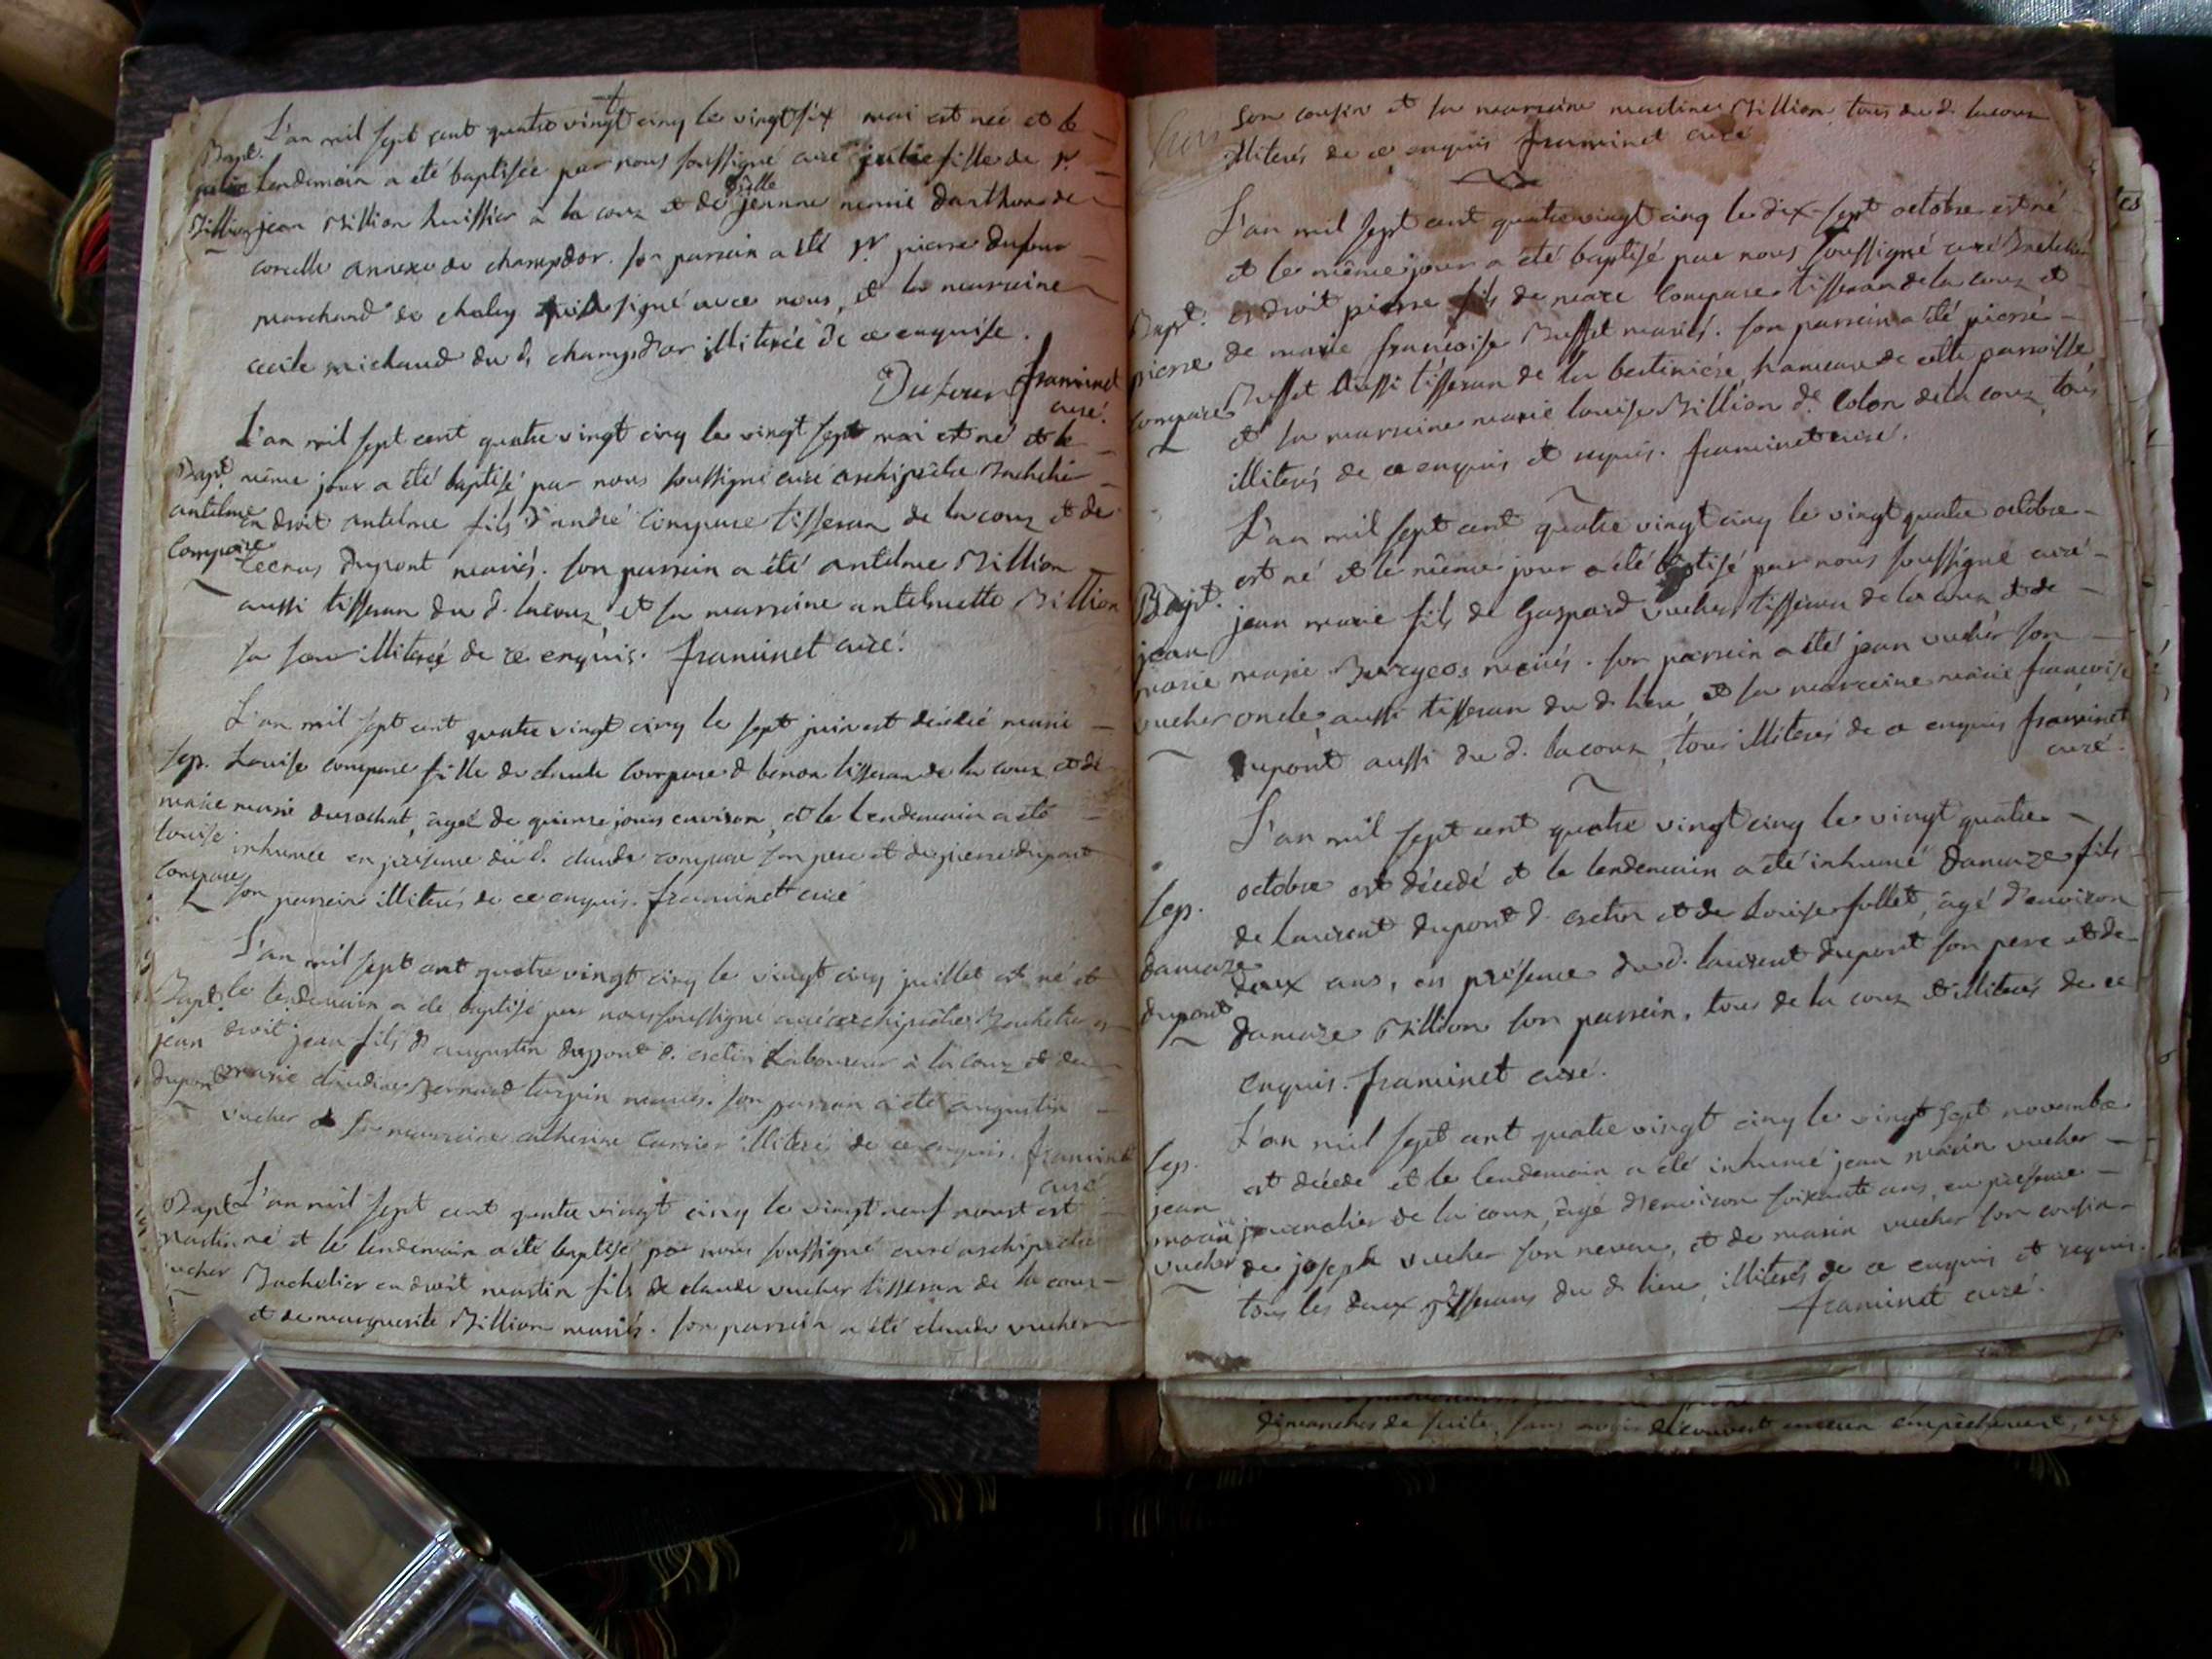 L'an mil sept cent quatre vingt cinq le vingt six mai est née et le
Bapt.
lendemain a été baptisée par nous soussigné curé julie fille de Sr
julie
Million jean Million huissier à la couz et de Dlle jeanne nemié danthon de
corcelle annexe de champdor. son parrain a été Sr pierre dufour
marchand de chaley qui a signé avec nous, et la marraine
cecile michaud du d. champdor illiterée de ce enquise.
Dufour framinet
curé.
L'an mil sept cent quatre vingt cinq le vingt sept mai est né et le
Bapt. même jour a été baptisé par nous soussigné curé archiprêtre Bachelier
antelme en droit antelme fils d'andré Compare tisseran de la couz et de
Compare dupont mariés. son parrain a été antelme Million
aussi tisseran du d. lacouz, et sa marraine antelmette Million
sa soeur illiterés de ce enquis. framinet curé.
L'an mil sept cent quatre vingt cinq le sept juin est décédée marie
Sep. Louise compare fille de claude Compare d benon tisseran de la couz et de
marie marie durochat, âgée de quinze jours environ, et le lendemain a été
louise inhumée en présence du d. claude compare son pere et de pierre dupont
compare
son parrain illiterés de ce enquis. framinet curé
L'an mil sept cent quatre vingt cinq le vingt cinq juillet est né et
Bapt. le lendemain a été baptisé par nous soussigné curé archiprêtre Bachelier en
jean droit jean fils d'augustin dupont d. cretin Laboureur à la couz et de
dupont marie claudine Bernard turpin mariés. son parrain a été augustin
vucher et sa marraine catherine Carrier illiterés de ce enquis. framinet
curé
Bapt. L'an mil sept cent quatre vingt cinq le vingt neuf aoust est
martin né et le lendemain a été baptisé par nous soussigné curé archiprêtre
vucher Bachelier en droit martin fils de claude vucher tisseran de la couz
et de marguerite Million mariés. son parrain a été claude vucher
son cousin et sa marraine martine Million tous du d. lacouz
illiterés de ce enquis framinet curé
L'an mil sept cent quatre vingt cinq le dix-sept octobre est né
et le même jour a été baptisé par nous soussigné curé Bachelier
Bapt. en droit pierre fils de marc Compare tisseran de la couz et
pierre de marie françoise Buffet mariés. son parrain a été pierre
compare Buffet aussi tisseran de la bertinière hameau de cette parroisse
et sa marraine marie louise Million d. Colon de la couz, tous
illiterés de ce enquis et requis. framinet curé.
L'an mil sept cent quatre vingt cinq le vingt quatre octobre
est né et le même jour a été baptisé par nous soussigné curé
Bapt. jean marie fils de Gaspard vucher tisseran de la couz et de
jean
marie marie mariés. son parrain a été jean vucher son
vucher oncle, aussi tisseran du d. lieu et sa marraine marie françoise
dupont aussi du d. lacouz, tous illiterés de ce enquis framinet
curé.
L'an mil sept cent quatre vingt cinq le vingt quatre
Sep. octobre est décédé et le lendemain a été inhumé damaze fils
de laurent dupont d. cretin et de Louise follet, âgé d'environ
damaze deux ans, en présence du d. laurent dupont son pere et de
dupont damaze Million son parrain, tous de la couz et illiterés de ce
enquis. framinet curé.
L'an mil sept cent quatre vingt cinq le vingt sept novembre
Sep. est décédé et le lendemain a été inhumé jean marin vucher
jean
marin journalier de la couz, âgé d'environ soixante ans, en présence
vucher de joseph vucher son neveu, et de marin vucher son cousin
tous les deux tisserans du d. lieu, illiterés de ce enquis et requis.
framinet curé.
dimanches de suite, sans avoir découvert aucun empêchement,